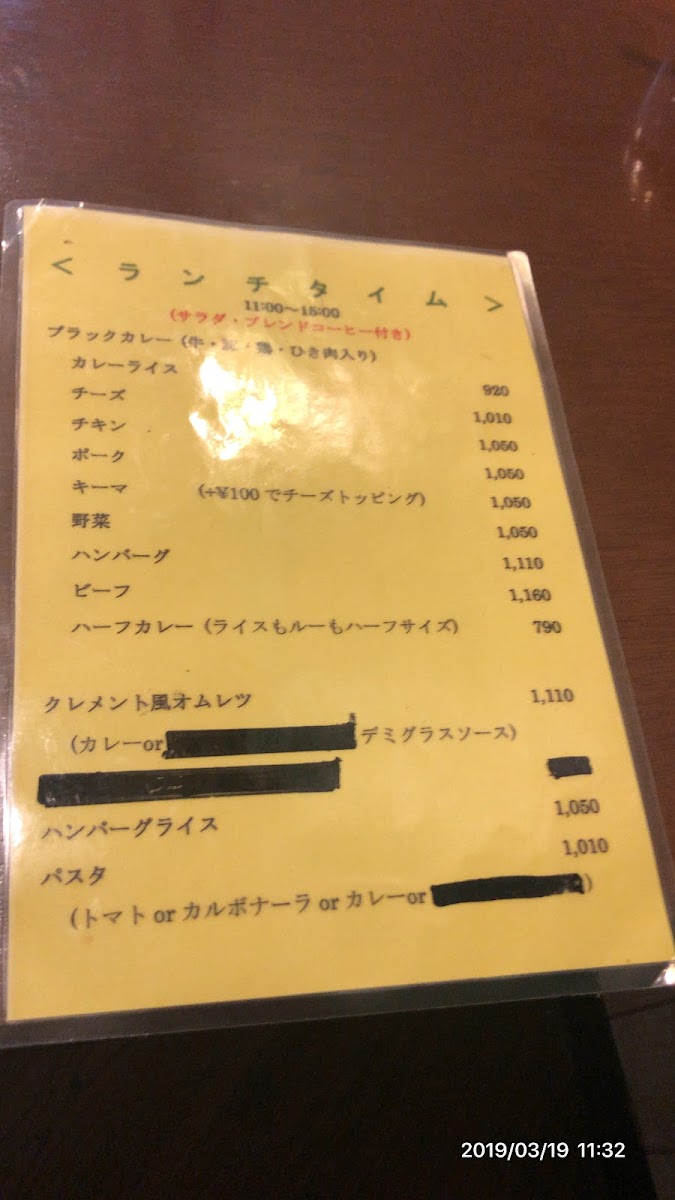 < ランチタイム >
11:00～15:00
(サラダ・ブレンドコーヒー付き)
ブラックカレー (牛・豚・鶏・ひき肉入り)
カレーライス 920
チーズ 1,010
チキン 1,050
ポーク 1,050
キーマ (+¥100でチーズトッピング) 1,050
野菜 1,050
ハンバーグ 1,110
ビーフ 1,160
ハーフカレー (ライスもルーもハーフサイズ) 790
クレメント風オムレツ 1,110
(カレーor デミグラスソース)
ハンバーグライス 1,050
パスタ 1,010
(トマト or カルボナーラ or カレーor )
2019/03/19 11:32